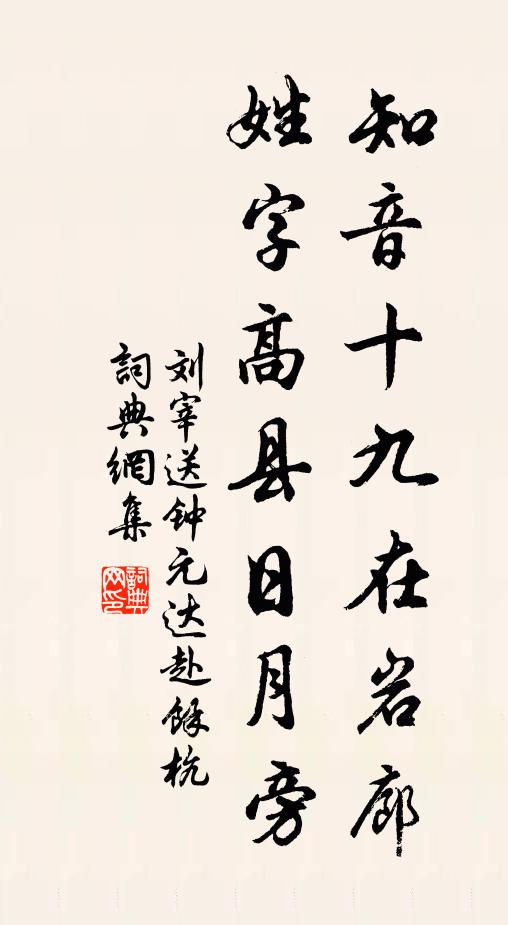 知音十九在岩廊
姓字高县日月旁
刘宰送钟元达赴馀杭
詞典網集
詞典
网印